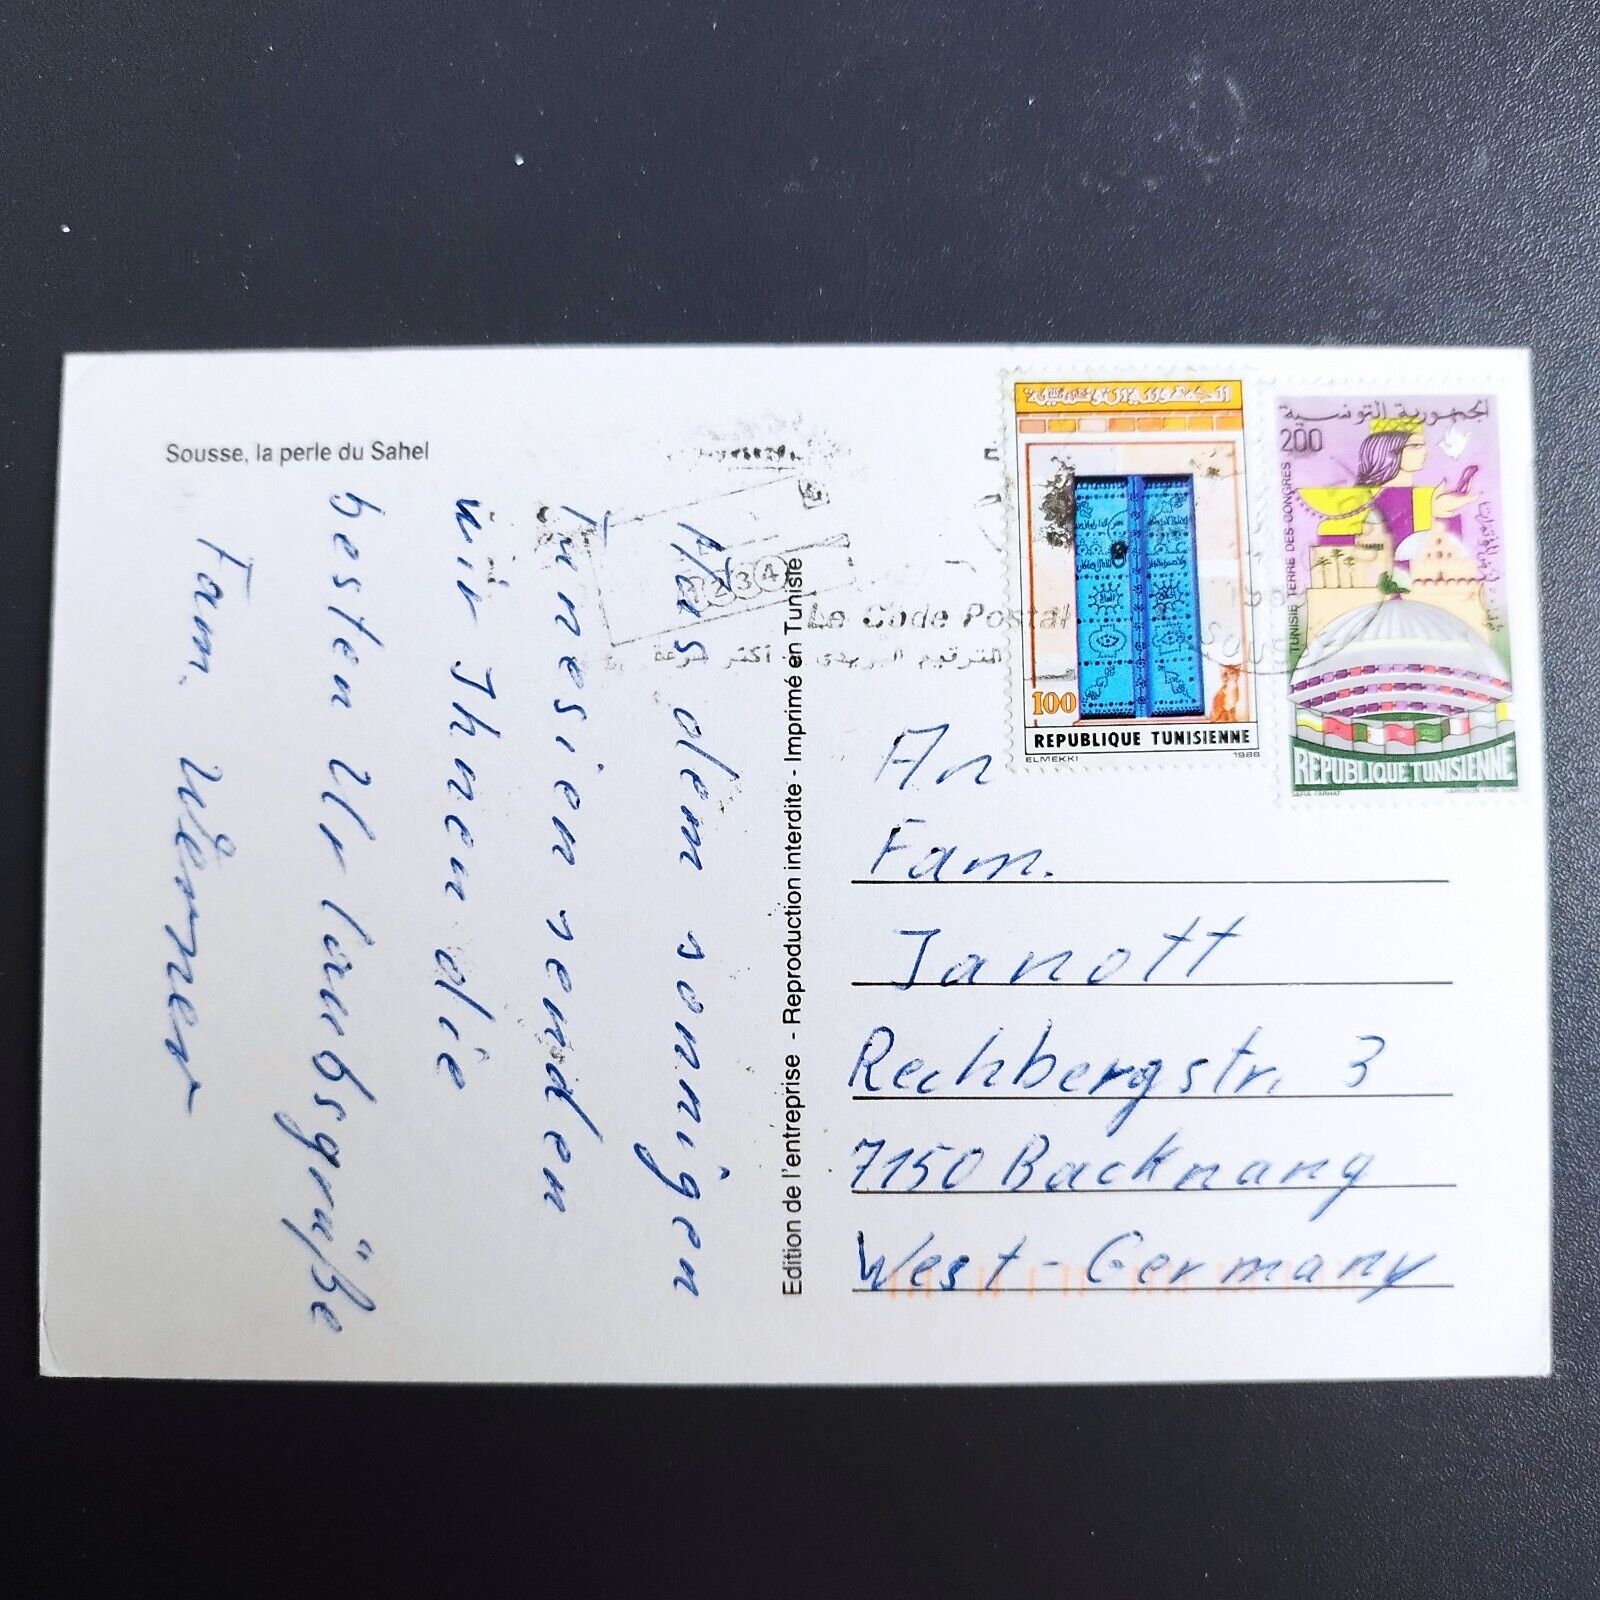 Sousse, la perle du Sahel
Aus dem sonnigen
Tunesien senden
wir Ihnen die
besten Urlaubsgrüße
Fam. Werner
Edition de l'entreprise - Reproduction interdite - Imprimé en Tunisie
1234
Le Code Postal
100
REPUBLIQUE TUNISIENNE
ELMEKKI 1988
الجمهورية التونسية
200
TUNISIE TERRE DES CONGRES
REPUBLIQUE TUNISIENNE
SAFIA FARHAT HARRISON AND SONS
Sousse
An
Fam.
Janott
Rechbergstr. 3
7150 Backnang
West-Germany